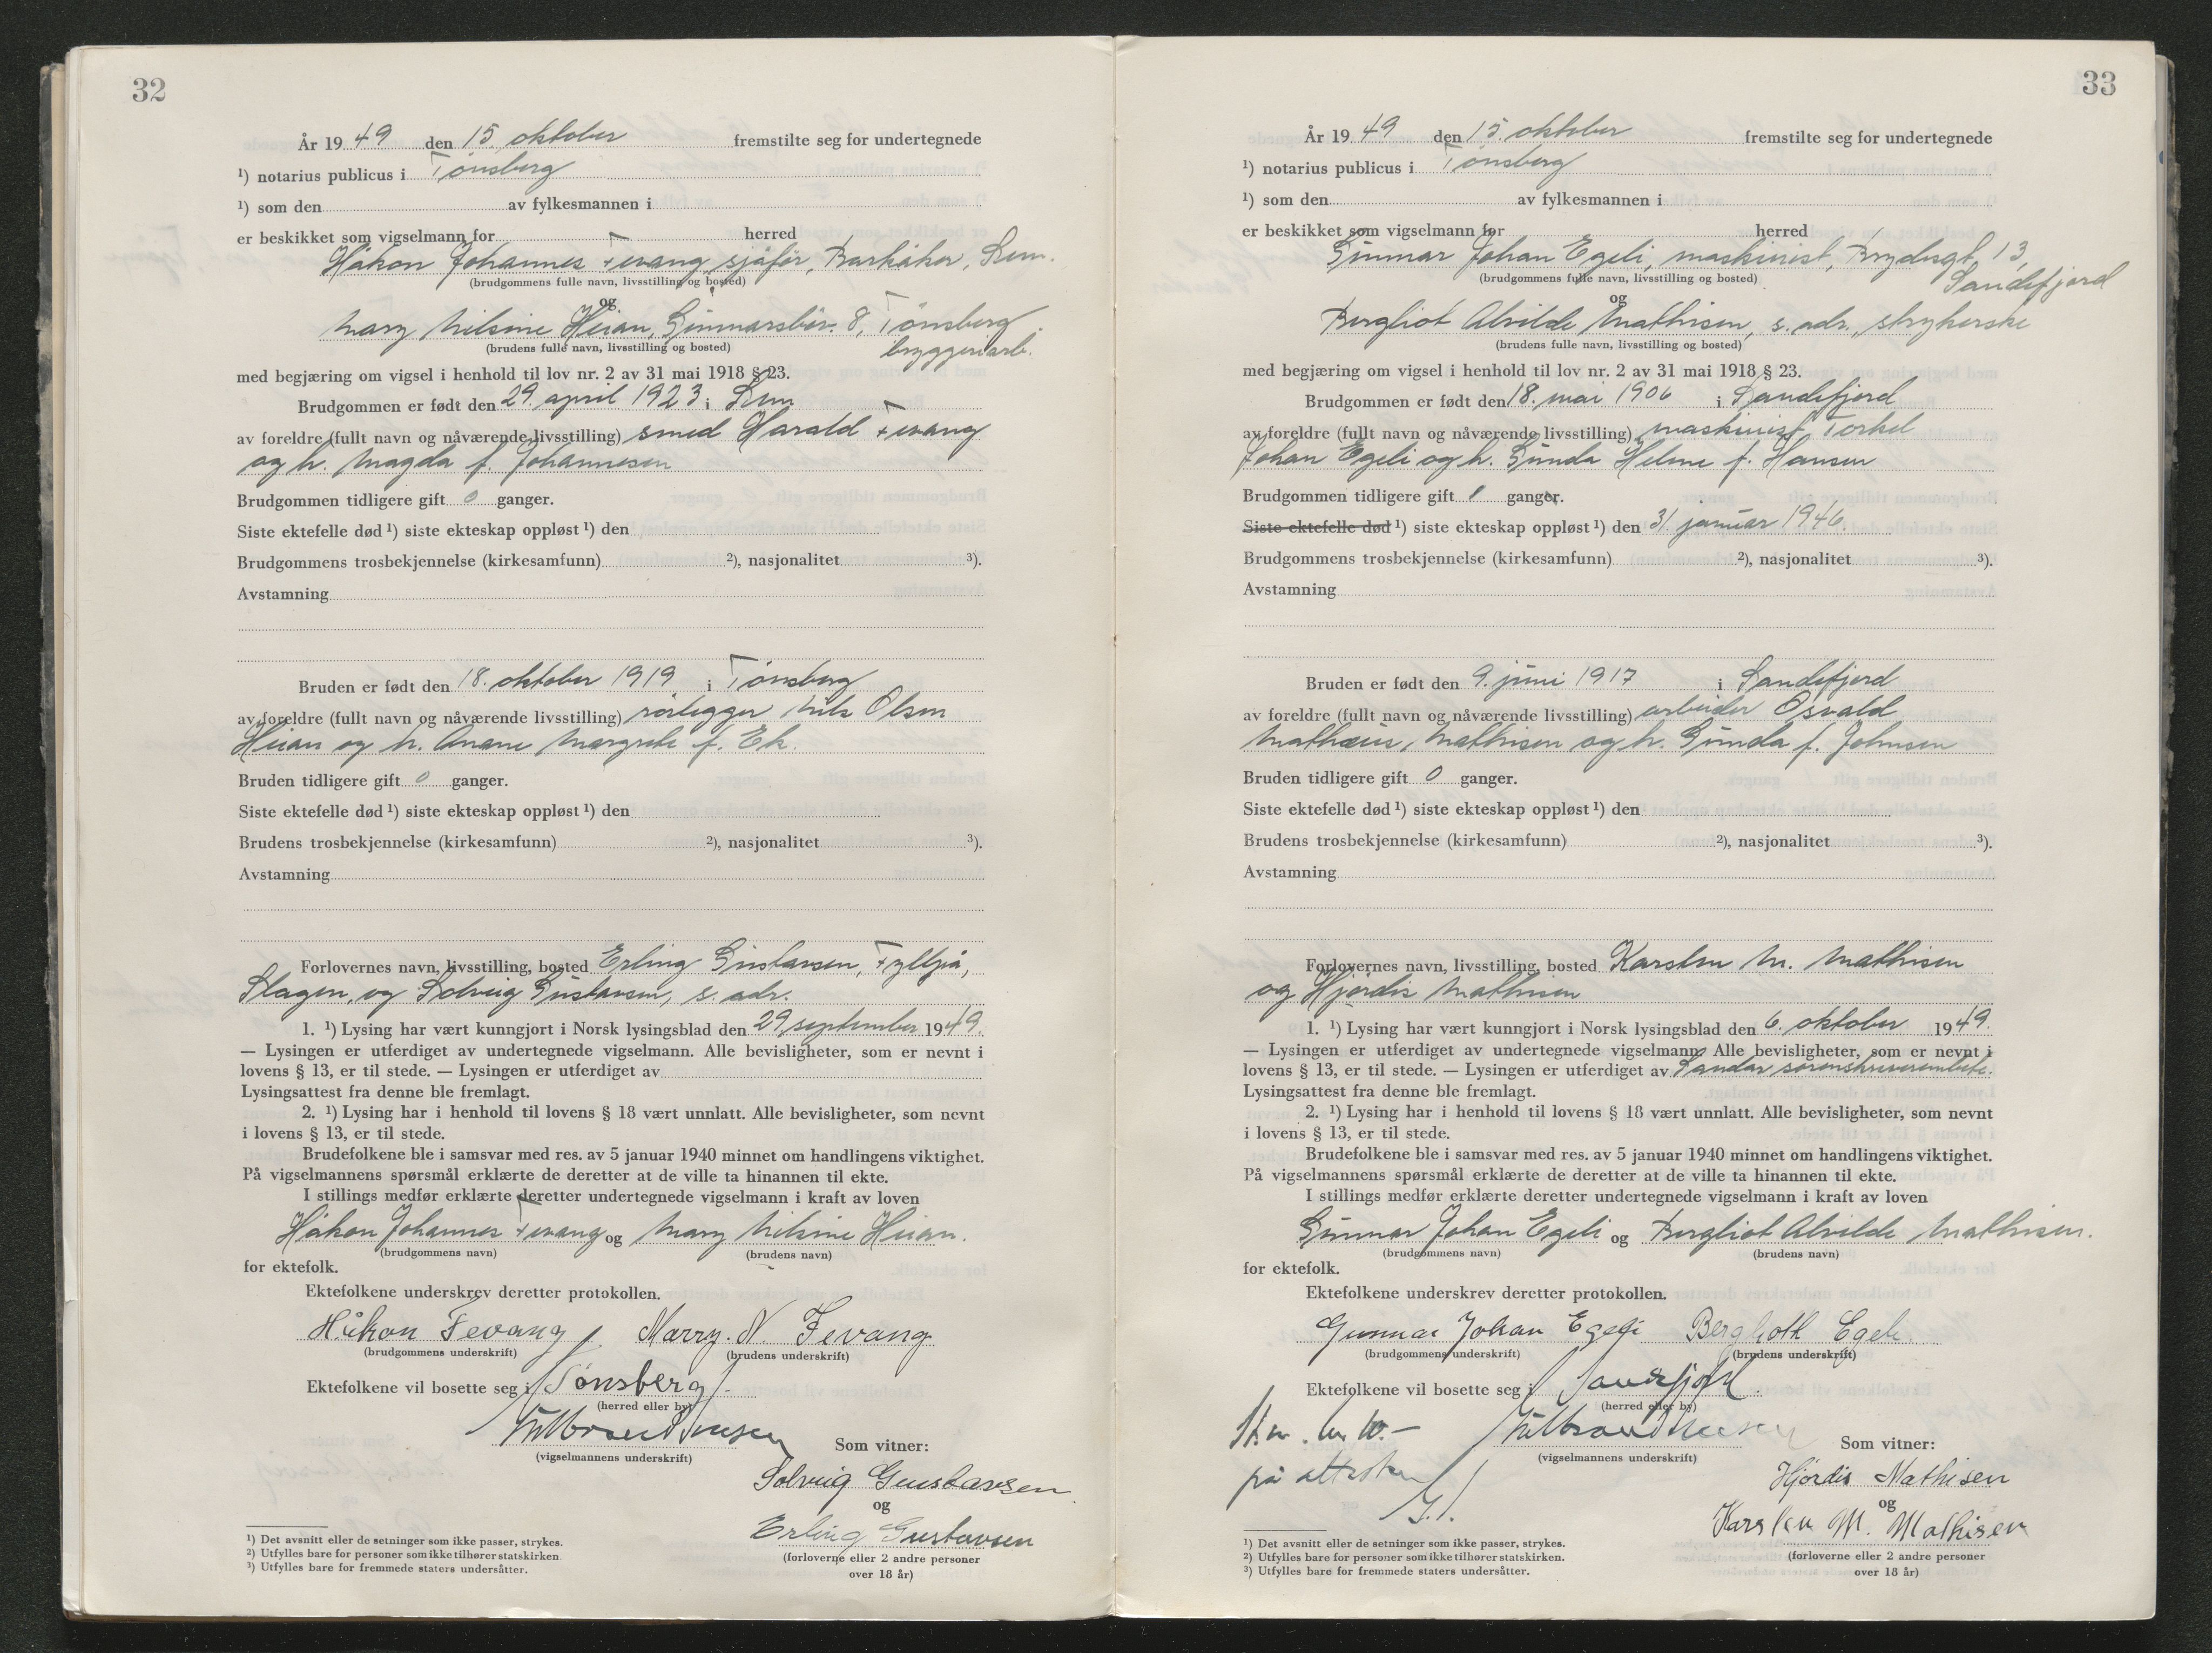 32
År 1949 den 15. oktober fremstilte seg for undertegnede
¹) notarius publicus i Tønsberg
¹) som den av fylkesmannen i
er beskikket som vigselmann for herred
Håkon Johannes Fevang, sjåfør, Barkåker, Sem.
(brudgommens fulle navn, livsstilling og bosted)
og
Mary Nilsine Heian, Gunnarsbøv. 8, Tønsberg.
(brudens fulle navn, livsstilling og bosted) bryggeriarb.
med begjæring om vigsel i henhold til lov nr. 2 av 31 mai 1918 § 23.
Brudgommen er født den 29. april 1923 i Sem
av foreldre (fullt navn og nåværende livsstilling) smed Harald Fevang
og h. Magda f. Johannesen
Brudgommen tidligere gift 0 ganger.
Siste ektefelle død ¹) siste ekteskap oppløst ¹) den
Brudgommens trosbekjennelse (kirkesamfunn) ²), nasjonalitet ³).
Avstamning
Bruden er født den 18. oktober 1919 i Tønsberg
av foreldre (fullt navn og nåværende livsstilling) rørlegger Nils Olsen
Heian og h. Anane Margrete f. Ek.
Bruden tidligere gift 0 ganger.
Siste ektefelle død ¹) siste ekteskap oppløst ¹) den
Brudens trosbekjennelse (kirkesamfunn) ²), nasjonalitet ³).
Avstamning
Forlovernes navn, livsstilling, bosted Erling Gustavsen, Fyllpå,
Slagen, og Solveig Gustavsen, s. adr.
1. ¹) Lysing har vært kunngjort i Norsk lysingsblad den 29 september 1949.
— Lysingen er utferdiget av undertegnede vigselmann. Alle bevisligheter, som er nevnt i
lovens § 13, er til stede. — Lysingen er utferdiget av
Lysingsattest fra denne ble fremlagt.
2. ¹) Lysing har i henhold til lovens § 18 vært unnlatt. Alle bevisligheter, som nevnt
i lovens § 13, er til stede.
Brudefolkene ble i samsvar med res. av 5 januar 1940 minnet om handlingens viktighet.
På vigselmannens spørsmål erklærte de deretter at de ville ta hinannen til ekte.
I stillings medfør erklærte deretter undertegnede vigselmann i kraft av loven
Håkon Johannes Fevang og Mary Nilsine Heian.
(brudgommens navn) (brudens navn)
for ektefolk.
Ektefolkene underskrev deretter protokollen.
Håkon Fevang Marry. N. Fevang
(brudgommens underskrift) (brudens underskrift)
Ektefolkene vil bosette seg i Tønsberg
(herred eller by)
(vigselmannens underskrift)
Som vitner:
Solveig Gustavsen
og
Erling Gustavsen
(forloverne eller 2 andre personer
over 18 år)
¹) Det avsnitt eller de setninger som ikke passer, strykes.
²) Utfylles bare for personer som ikke tilhører statskirken.
³) Utfylles bare for fremmede staters undersåtter.
33
År 1949 den 15. oktober fremstilte seg for undertegnede
¹) notarius publicus i Tønsberg
¹) som den av fylkesmannen i
er beskikket som vigselmann for herred
Gunnar Johan Egeli, maskinist, Brydesgt. 13,
(brudgommens fulle navn, livsstilling og bosted) Sandefjord
og
Bergliot Alvilde Mathisen, s. adr., strykerske
(brudens fulle navn, livsstilling og bosted)
med begjæring om vigsel i henhold til lov nr. 2 av 31 mai 1918 § 23.
Brudgommen er født den 18. mai 1906 i Sandefjord
av foreldre (fullt navn og nåværende livsstilling) maskinist Torkel
Johan Egeli og h. Gunda Helene f. Hansen
Brudgommen tidligere gift 1 ganger.
Siste ektefelle død ¹) siste ekteskap oppløst ¹) den 31. januar 1946.
Brudgommens trosbekjennelse (kirkesamfunn) ²), nasjonalitet ³).
Avstamning
Bruden er født den 9. juni 1917 i Sandefjord
av foreldre (fullt navn og nåværende livsstilling) arbeider Osvald
Mathæus Mathisen og h. Gunda f. Johnsen
Bruden tidligere gift 0 ganger.
Siste ektefelle død ¹) siste ekteskap oppløst ¹) den
Brudens trosbekjennelse (kirkesamfunn) ²), nasjonalitet ³).
Avstamning
Forlovernes navn, livsstilling, bosted Karsten M. Mathisen
og Hjørdis Mathisen
1. ¹) Lysing har vært kunngjort i Norsk lysingsblad den 6. oktober 1949.
— Lysingen er utferdiget av undertegnede vigselmann. Alle bevisligheter, som er nevnt i
lovens § 13, er til stede. — Lysingen er utferdiget av Sandar sorenskriverembete.
Lysingsattest fra denne ble fremlagt.
2. ¹) Lysing har i henhold til lovens § 18 vært unnlatt. Alle bevisligheter, som nevnt
i lovens § 13, er til stede.
Brudefolkene ble i samsvar med res. av 5 januar 1940 minnet om handlingens viktighet.
På vigselmannens spørsmål erklærte de deretter at de ville ta hinannen til ekte.
I stillings medfør erklærte deretter undertegnede vigselmann i kraft av loven
Gunnar Johan Egeli og Bergliot Alvilde Mathisen.
(brudgommens navn) (brudens navn)
for ektefolk.
Ektefolkene underskrev deretter protokollen.
Gunnar Johan Egeli Berglioth Egeli
(brudgommens underskrift) (brudens underskrift)
Ektefolkene vil bosette seg i Sandefjord.
(herred eller by)
St.m. kr. 10.–
på attesten
(vigselmannens underskrift)
Som vitner:
Hjördis Mathisen
og
Karsten M. Mathisen
(forloverne eller 2 andre personer
over 18 år)
¹) Det avsnitt eller de setninger som ikke passer, strykes.
²) Utfylles bare for personer som ikke tilhører statskirken.
³) Utfylles bare for fremmede staters undersåtter.